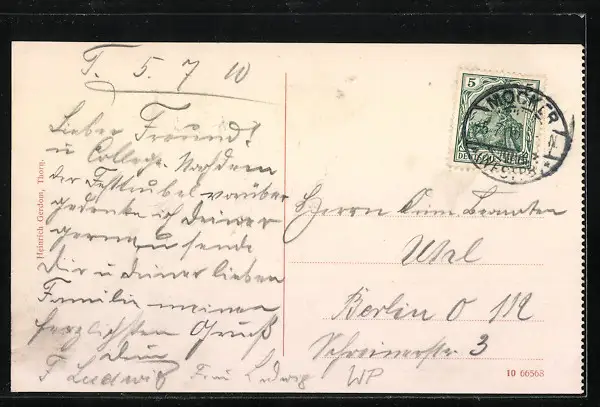 T. 5. 7. 10
Lieber Freund!
u College. Nachdem
der Festtrubel vorüber
gedenke ich deiner
gerne u sende
Dir u deiner lieben
Familie meinen
herzlichsten Gruß
Dein
F Ludwig Frau Ludwig
Heinrich Gerdom, Thorn.
5 5
MOCKER
Herrn Beamten
Berlin O 112
Schreinerstr. 3
WP
10 66568